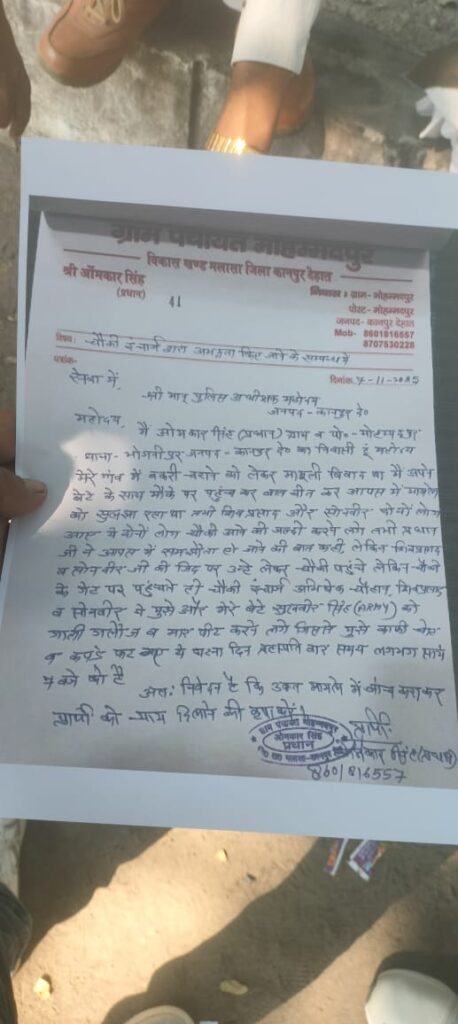 ग्राम पंचायत मोहम्मदपुर
विकास खण्ड मलासा जिला कानपुर देहात
श्री ओंमकार सिंह
(प्रधान)
41
निवास : ग्राम- मोहम्मदपुर
पोस्ट- मोहम्मदपुर
जनपद- कानपुर देहात
Mob- 8601816557
8707530228
विषय: चौकी इंचार्ज द्वारा अभद्रता किए जाने के सम्बन्ध में
पत्रांक-
दिनांक 7-11-2025
सेवा में,
श्री मान् पुलिस अधीक्षक महोदय
जनपद - कानपुर दे०
महोदय, मैं ओमकार सिंह (प्रधान) ग्राम व पो०- मोहम्मदपुर
थाना- भोगनीपुर जनपद - कानपुर दे० का निवासी हूं महोदय
मेरे गांव में बकरी चराने को लेकर मामूली विवाद था मैं अपने
बेटे के साथ मौके पर पहुंच कर बात चीत कर आपस में मामले
को सुलझा रहा था तभी शिवप्रसाद और सोनवीर चौबे लोग
आए ये दोनों लोग चौकी जाने की जल्दी करने लगे तभी प्रधान
जी ने आपस में समझौता हो जाने की बात कही, लेकिन शिवप्रसाद
व सोनवीर जी की जिद पर उन्हें लेकर चौकी पहुंचे लेकिन चौकी
के गेट पर पहुंचते ही चौकी इंचार्ज अभिषेक चौहान, शिवप्रसाद
व सोनवीर ने मुझे और मेरे बेटे सिंह (ARMY) को
गाली गलौज व मार पीट करने लगे जिससे मुझे काफी चोट
व कपड़े फट गए ये घटना दिन समय लगभग
7 बजे की है
अतः निवेदन है कि उक्त मामले में जांच कराकर
प्रार्थी को न्याय दिलाने की कृपा करें।
ग्राम पंचायत मोहम्मदपुर
ओमकार सिंह
प्रधान
प्रार्थी
ओमकार सिंह (प्रधान)
8601816557